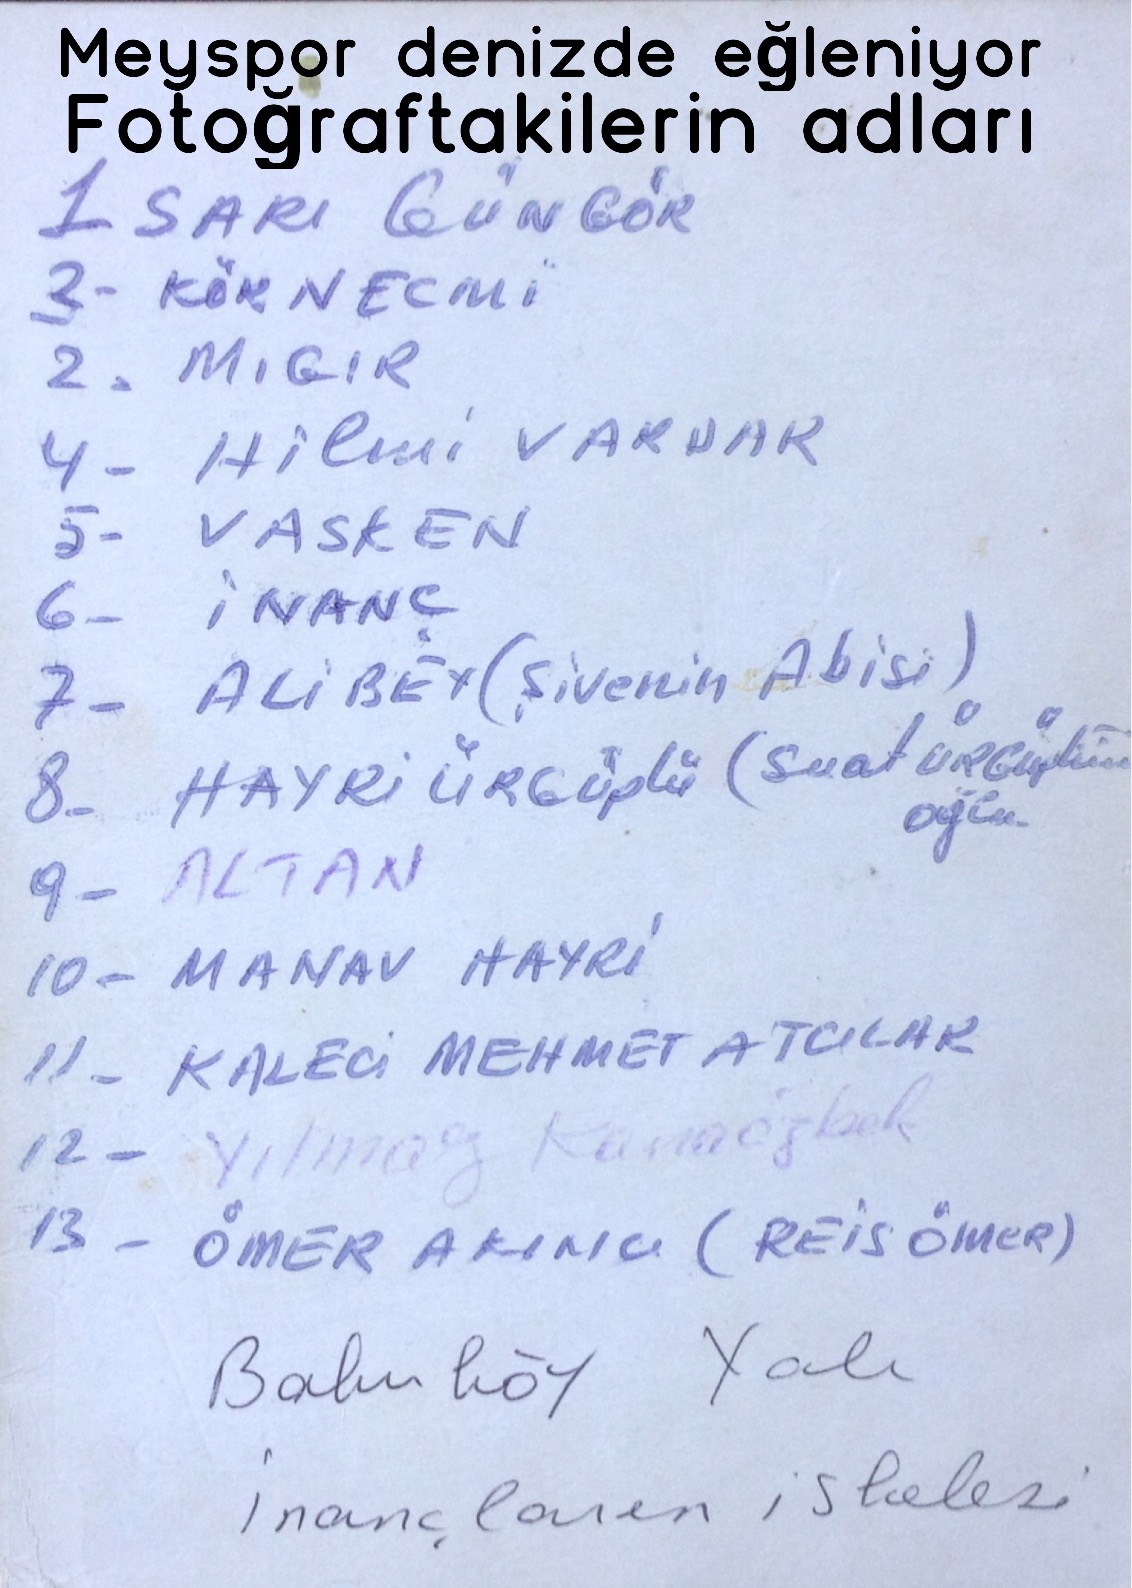 Meyspor denizde eğleniyor
Fotoğraftakilerin adları
1 SARI GÜNGÖR
3- KÖR NECMİ
2. MIGIR
4- Hilmi VARDAR
5- VASKEN
6- İNANÇ
7- ALİ BEY (Şivenin Abisi)
8- HAYRİ ÜRGÜPlü (Suat ÜRGÜplünün
oğlu
9- ALTAN
10- MANAV HAYRİ
11- KALECİ MEHMET ATCILAR
12- Yılmaz Karaözbek
13- ÖMER AKINCI (REİS ÖMER)
Bakırköy Yalı
İnançların iskelesi